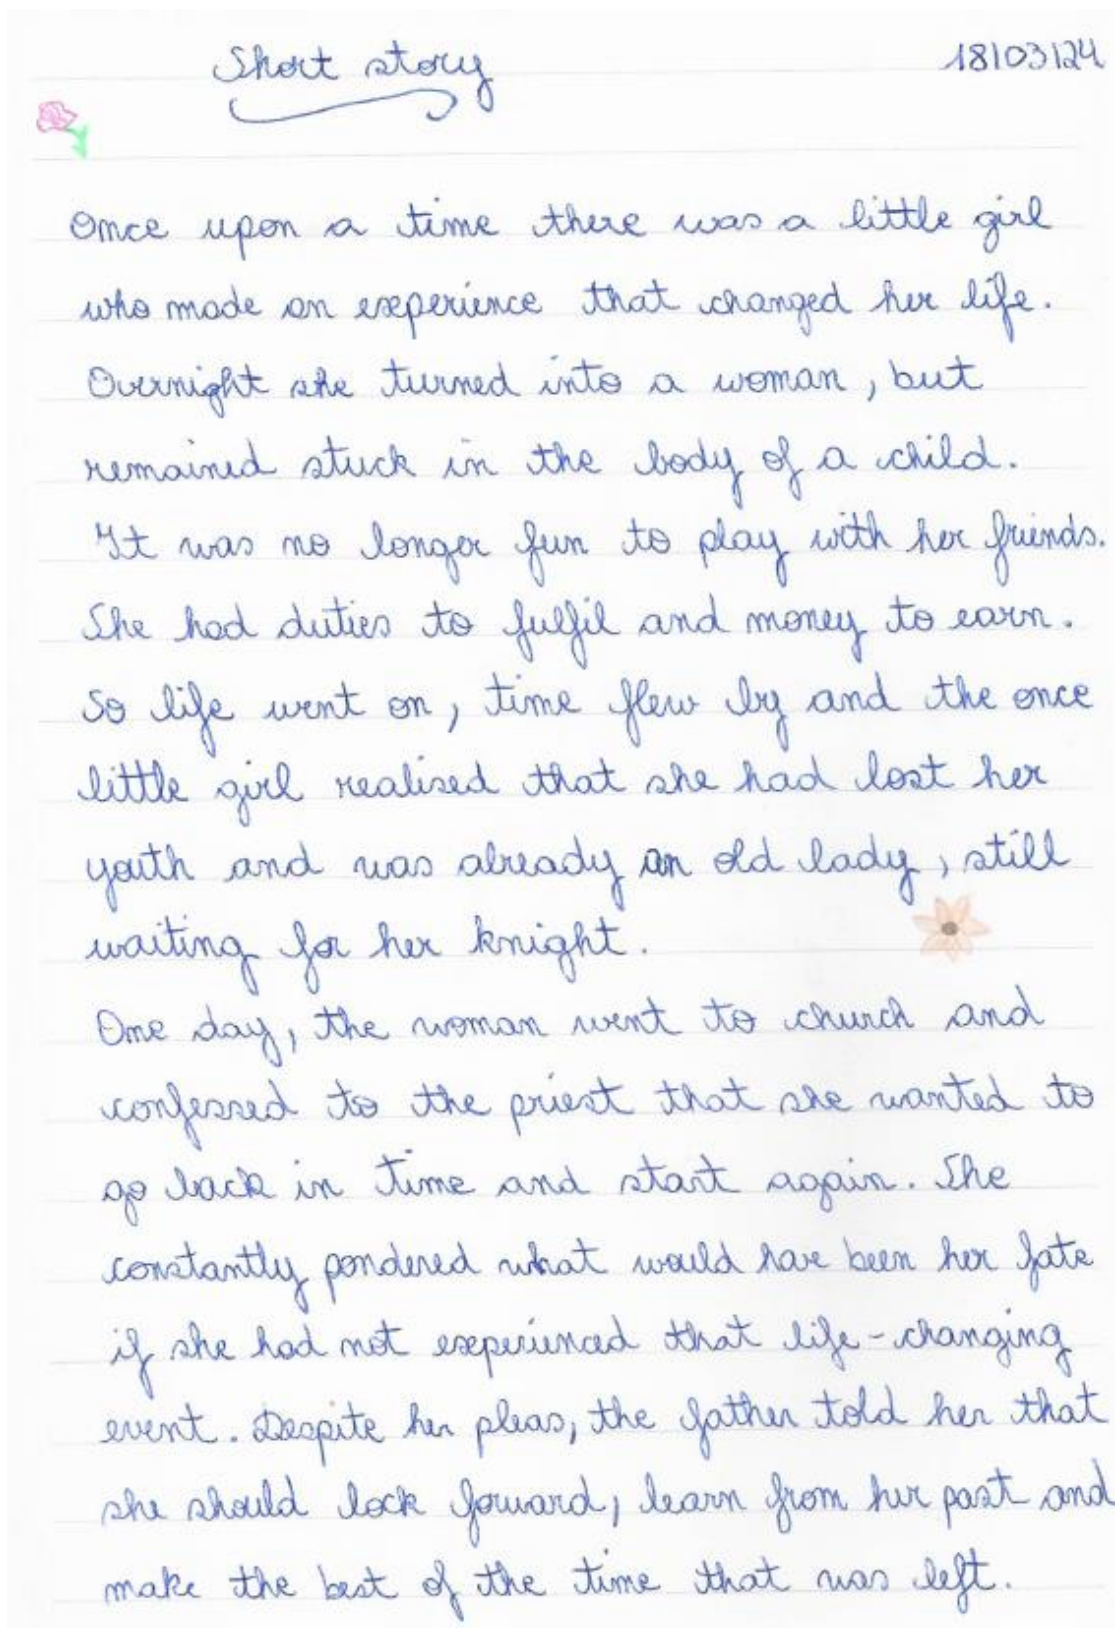 Short story
18/03/24
Once upon a time there was a little girl
who made an experience that changed her life.
Overnight she turned into a woman, but
remained stuck in the body of a child.
It was no longer fun to play with her friends.
She had duties to fulfil and money to earn.
So life went on, time flew by and the once
little girl realised that she had lost her
youth and was already an old lady, still
waiting for her knight.
One day, the woman went to church and
confessed to the priest that she wanted to
go back in time and start again. She
constantly pondered what would have been her fate
if she had not experienced that life-changing
event. Despite her pleas, the father told her that
she should look forward, learn from her past and
make the best of the time that was left.